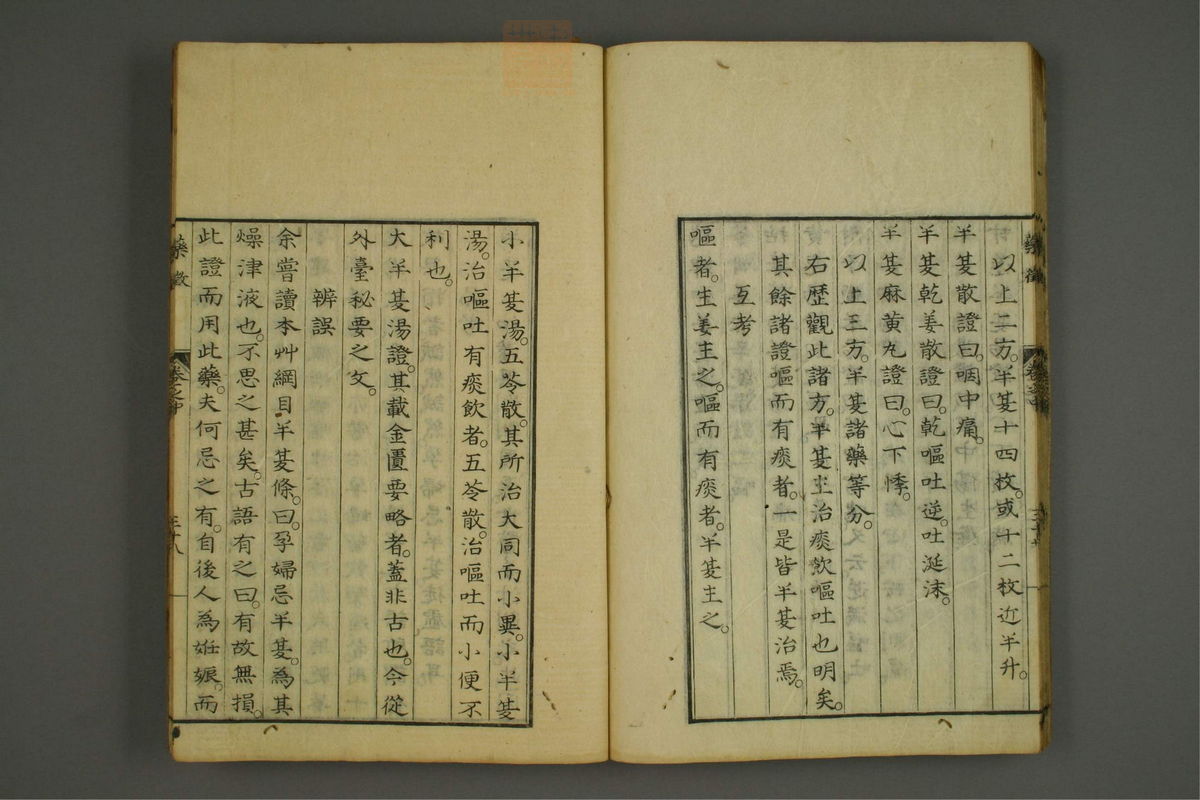 藥徵 卷之中 三十七
以上二方。半夏十四枚。或十二枚近半升。
半夏散證曰。咽中痛。
半夏乾姜散證曰。乾嘔吐逆。吐涎沫。
半夏麻黃丸證曰。心下悸。
以上三方。半夏諸藥等分。
右歷觀此諸方。半夏主治痰飮嘔吐也明矣。
其餘諸證嘔而有痰者。一是皆半夏治焉。
互考
嘔者。生姜主之。嘔而有痰者。半夏主之。
小半夏湯。五苓散。其所治大同而小異。小半夏
湯。治嘔吐有痰飮者。五苓散。治嘔吐而小便不
利也。
大半夏湯證。其載金匱要略者。蓋非古也。今從
外臺秘要之文。
辨誤
余嘗讀本艸綱目半夏條。曰。孕婦忌半夏。為其
燥津液也。不思之甚矣。古語有之曰。有故無損。
此證而用此藥。夫何忌之有。自後人為妊娠。而
藥徵 卷之中 三十八